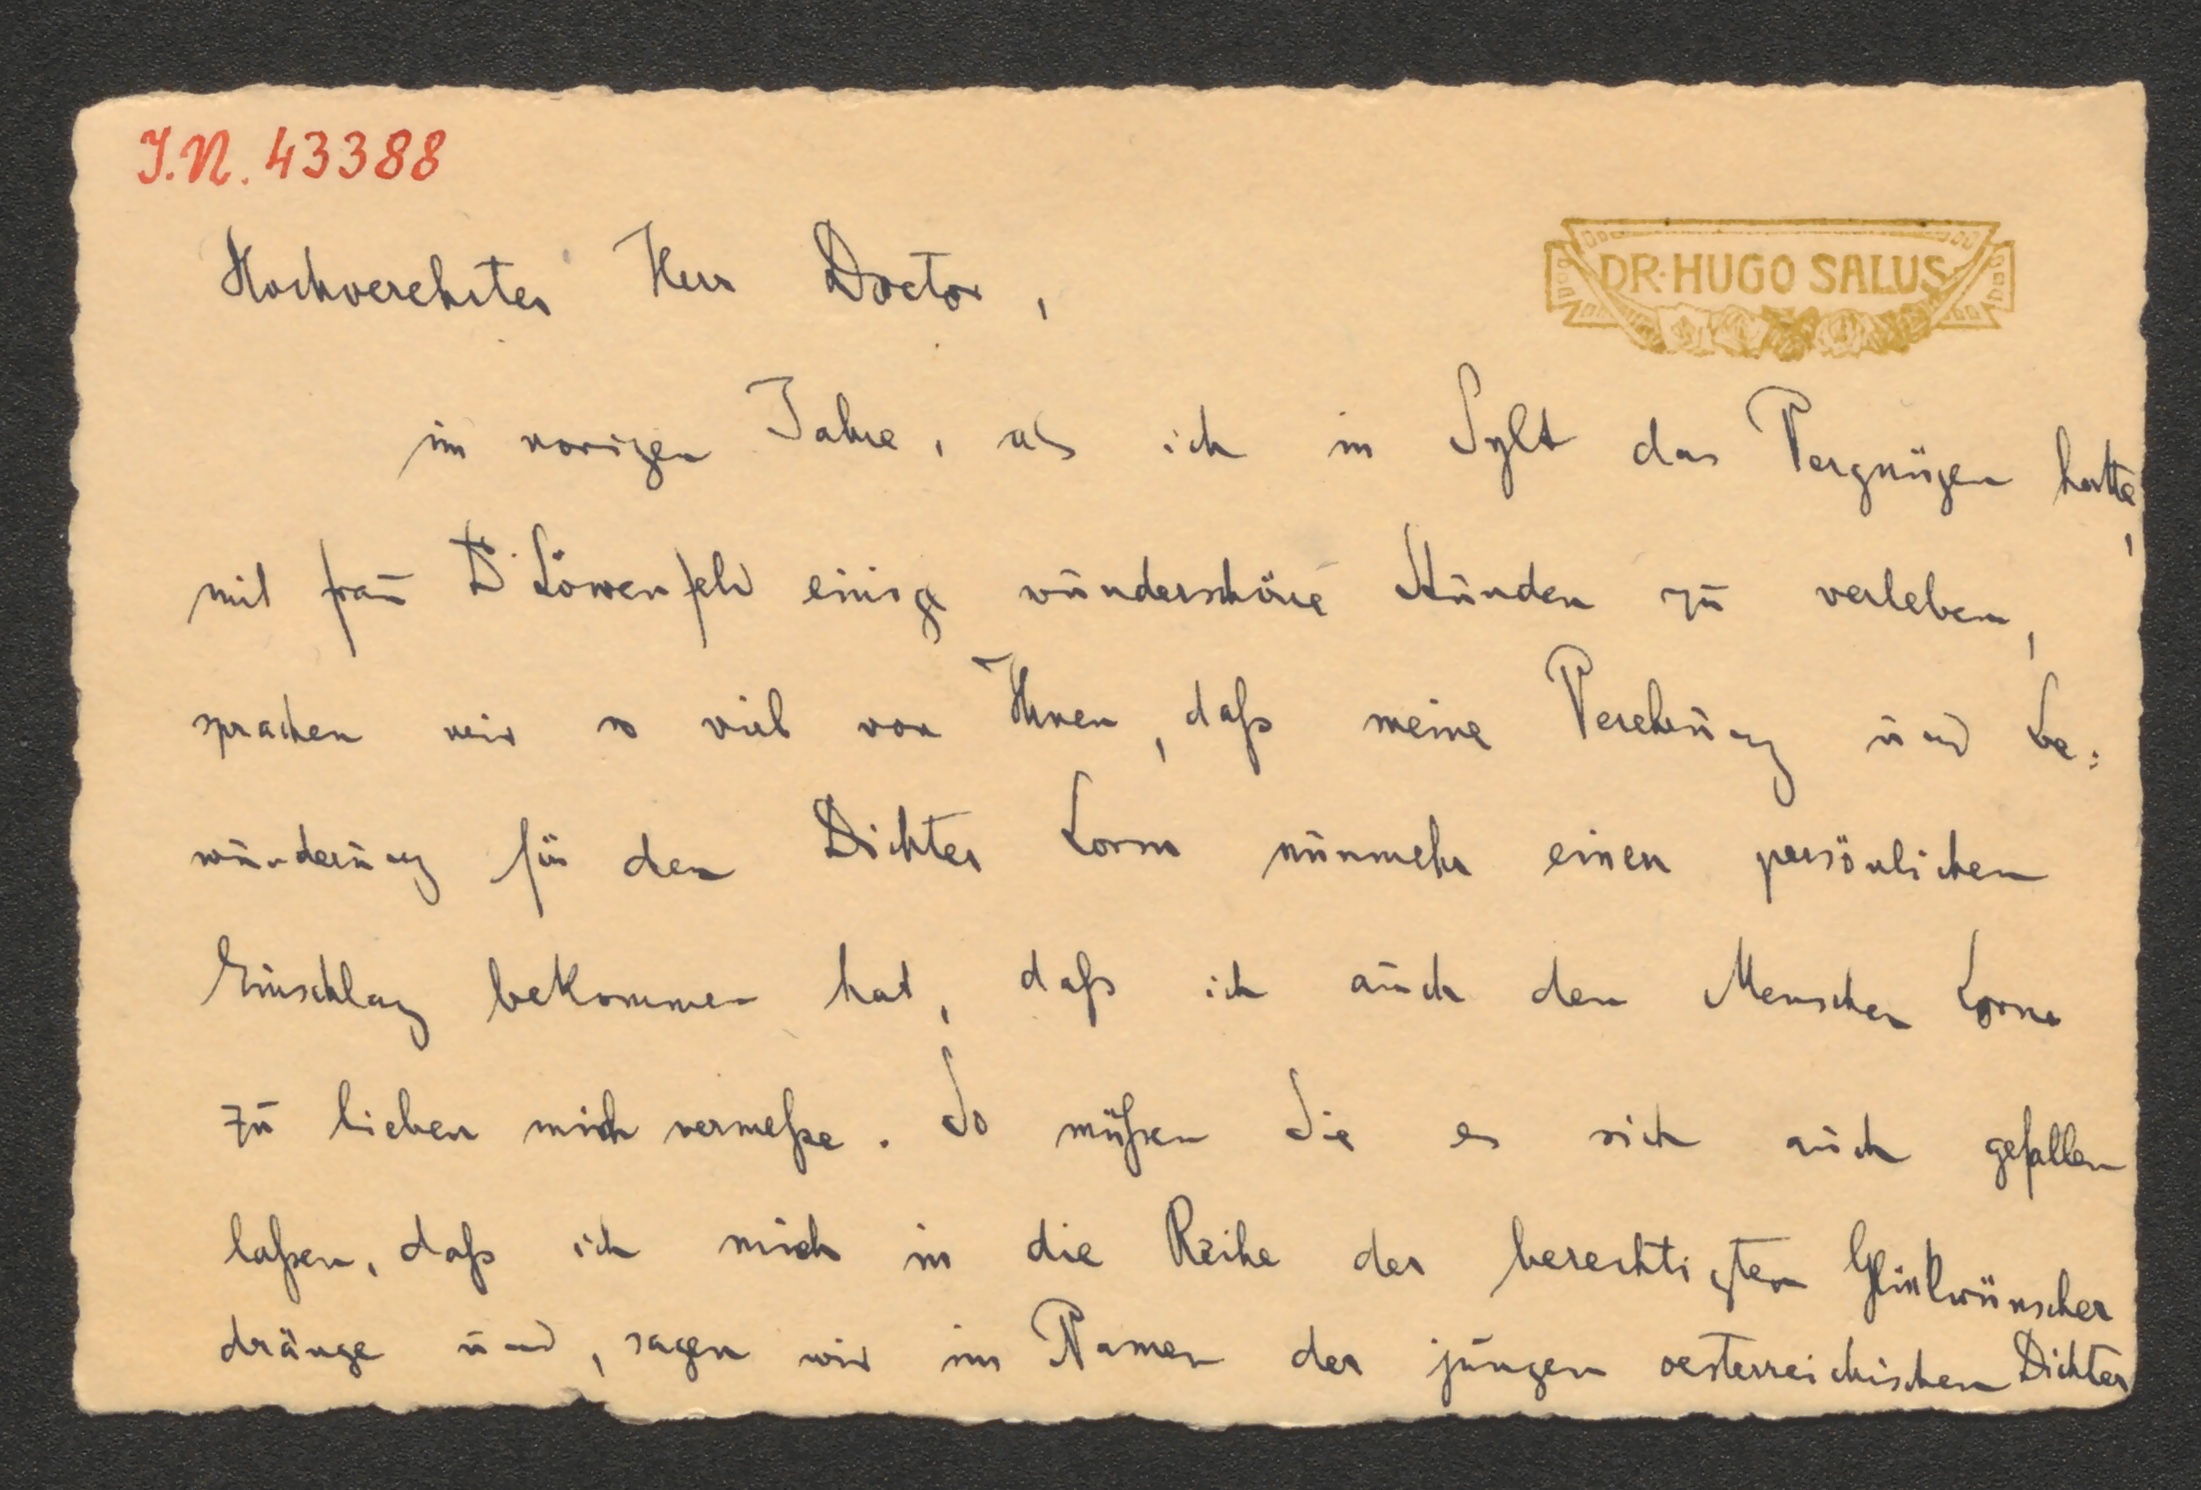 I.N. 43388
DR. HUGO SALUS
Hochverehrter Herr Doctor,
im vorigen Jahre, als ich in Sylt das Vergnügen hatte,
mit Frau Dr Löwenfeld einige wunderschöne Stunden zu verleben,
sprachen wir so viel von Ihnen, daß meine Verehrung und Be=
wunderung für den Dichter Lorm nunmehr einen persönlichen
Einschlag bekommen hat, daß ich auch den Menschen Lorm
zu lieben mich vermeße. So müßen Sie es sich auch gefallen
laßen, daß ich mich in die Reihe der berechtigten Glückwünscher
dränge und, sagen wir im Namen der jungen oesterreichischen Dichter